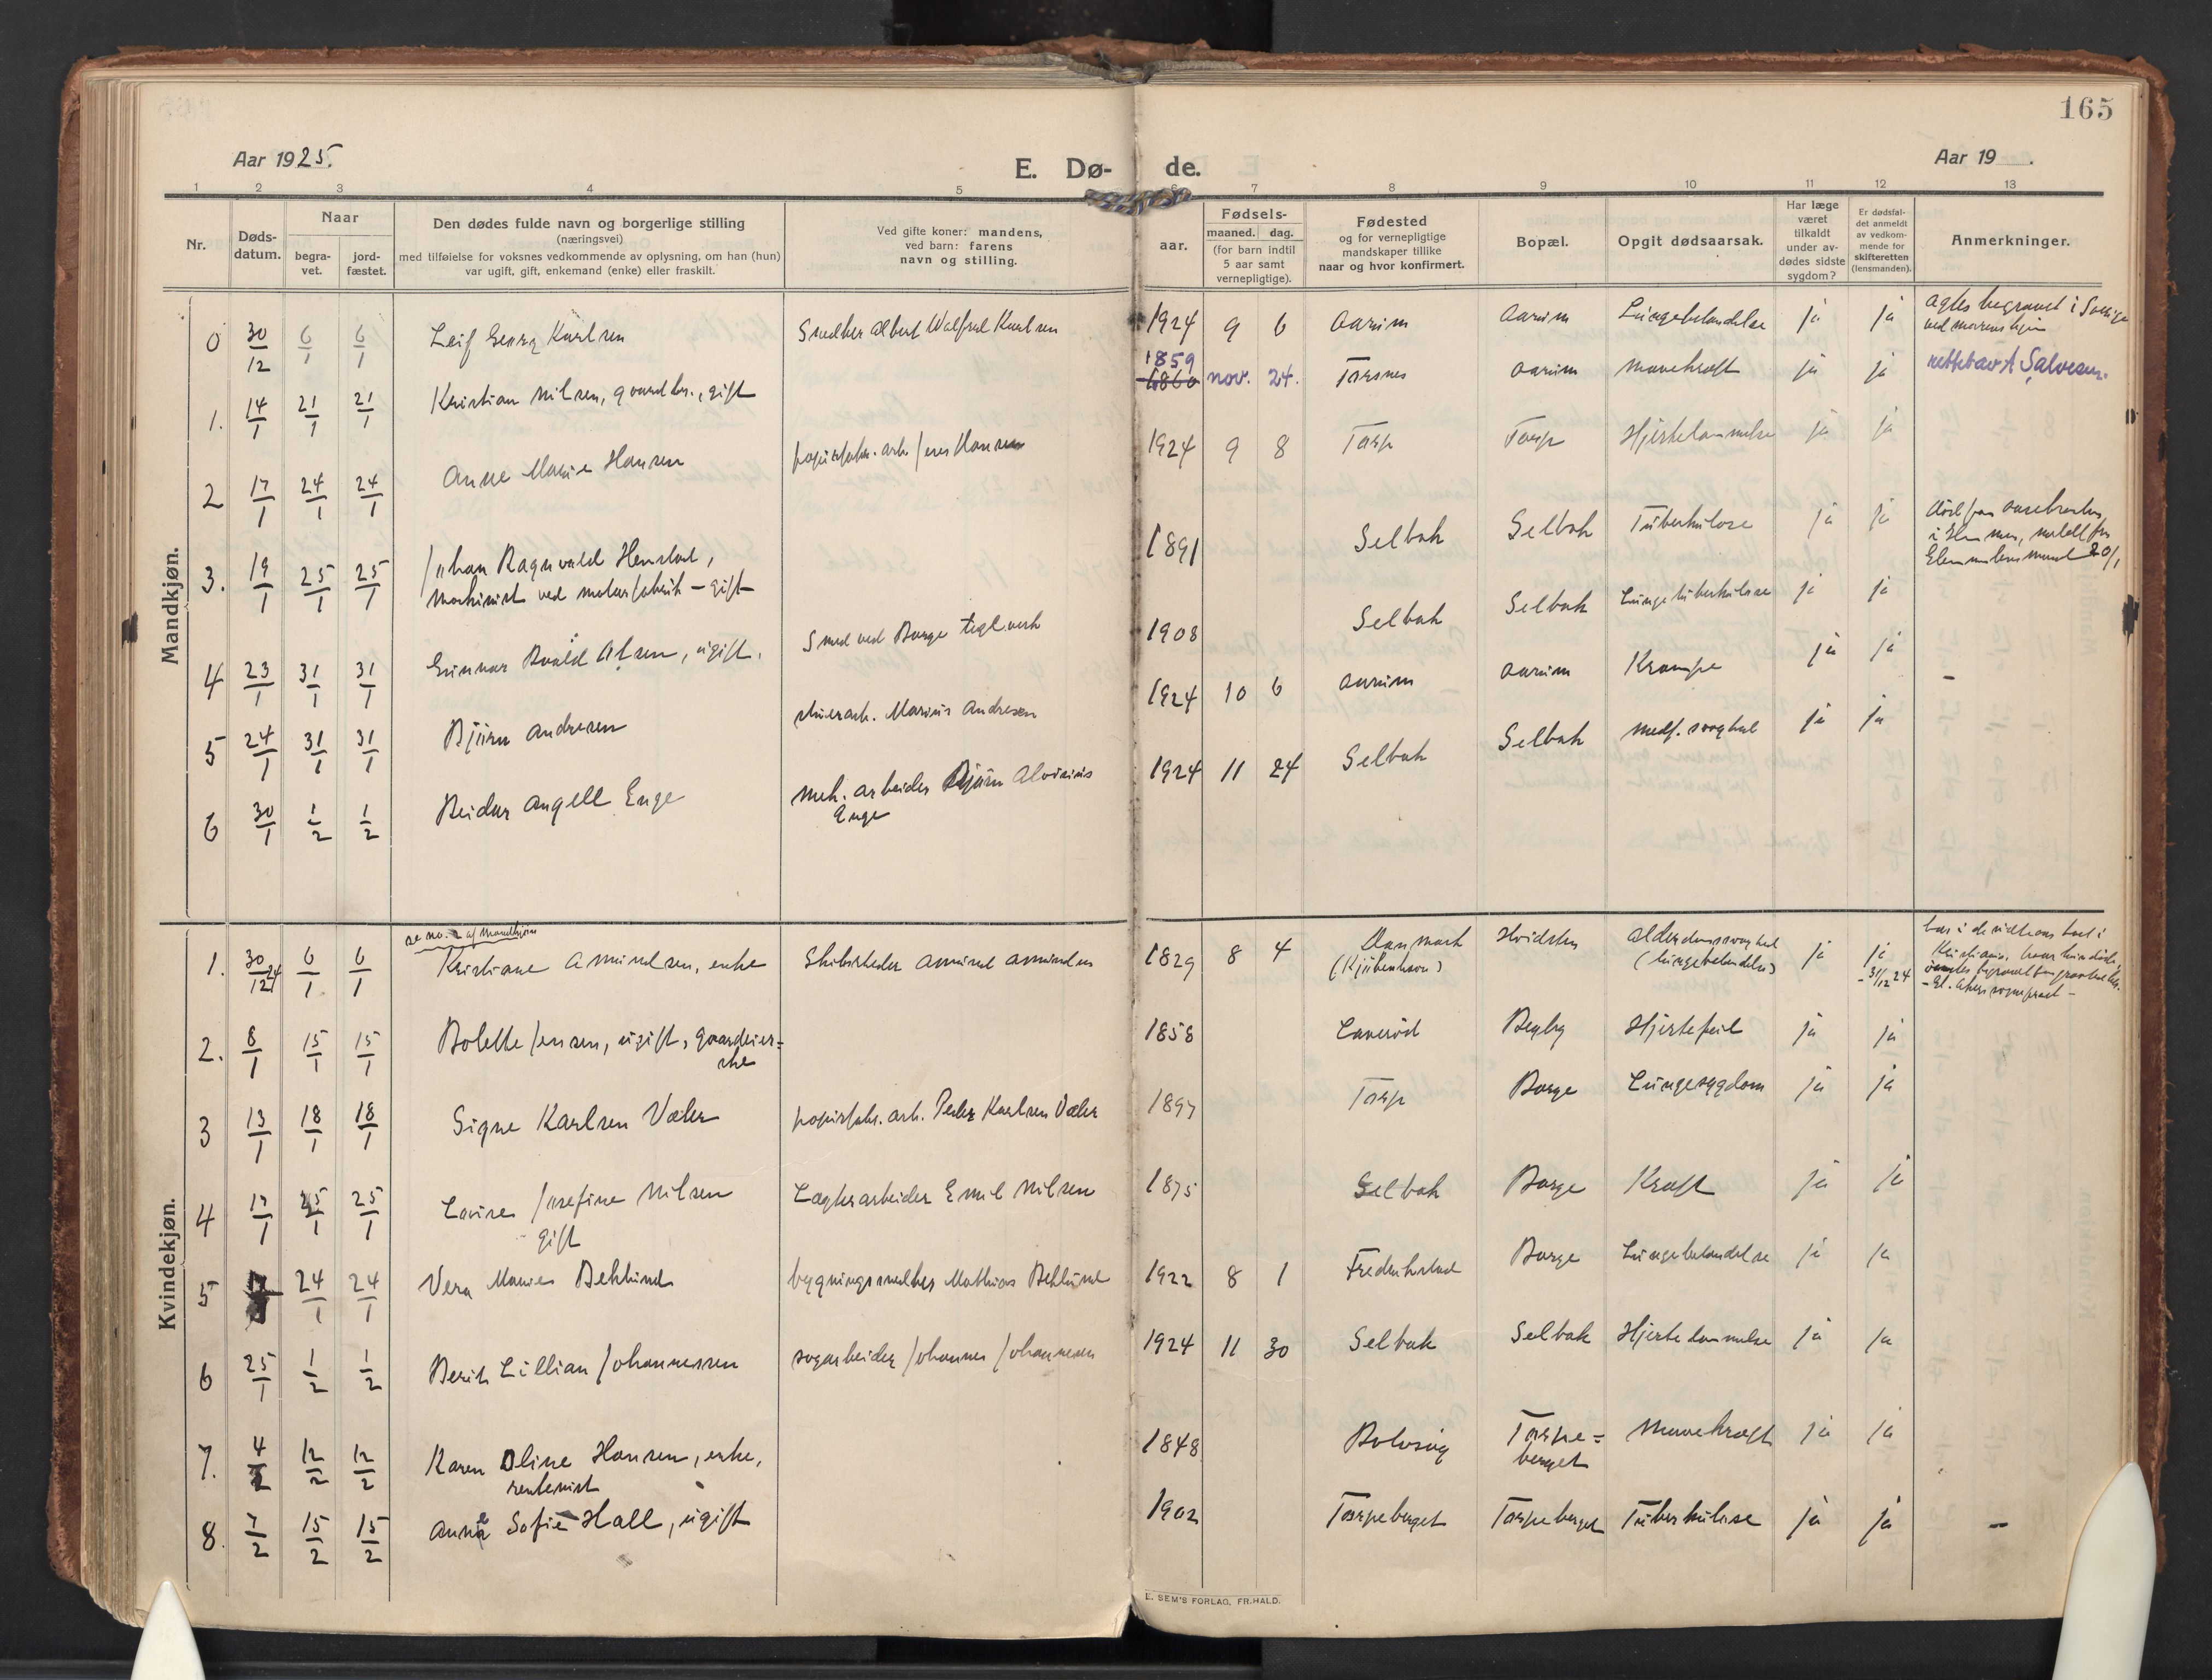 165
Aar 1925.
E. Dø-
de.
Aar 19 .
1 2 3 4 5 6 7 8 9 10 11 12 13
Nr.
Døds-
datum.
Naar
begra-
vet.
jord-
fæstet.
Den dødes fulde navn og borgerlige stilling
(næringsvei)
med tilføielse for voksnes vedkommende av oplysning, om han (hun)
var ugift, gift, enkemand (enke) eller fraskilt.
Ved gifte koner: mandens,
ved barn: farens
navn og stilling.
aar.
Fødsels-
maaned. dag.
(for barn indtil
5 aar samt
vernepligtige).
Fødested
og for vernepligtige
mandskaper tillike
naar og hvor konfirmert.
Bopæl.
Opgit dødsaarsak.
Har læge
været
tilkaldt
under av-
dødes sidste
sygdom?
Er dødsfal-
det anmeldt
av vedkom-
mende for
skifteretten
(lensmanden).
Anmerkninger.
Mandkjøn.
0 30/12 6/1 6/1 Leif Georg Karlsen Snedker Albert Walfred Karlsen 1924 9 6 Aarum Aarum Lungebetændelse ja ja Agtes begravet i Sverige
ved morens hjem
1. 14/1 21/1 21/1 Kristian Nilsen, gaardbr., gift 1859 1860 nov. 24. Torsnes Aarum Mavekræft ja ja rettet av A Salvesen.
2 17/1 24/1 24/1 Anne Marie Hansen papirfabr. arb. Jens Hansen 1924 9 8 Torp Torp Hjertelammelse ja ja
3. 19/1 25/1 25/1 Johan Ragnvald Henstad,
Maskinist ved motorfabrik - gift 1891 Selbak Selbak Tuberkulose ja ja
20/1
4 23/1 31/1 31/1 Gunnar Olsen, ugift. Smed ved Borge teglverk 1908 Selbak Selbak Lungetuberkulose ja ja
5 24/1 31/1 31/1 Bjørn Andresen Marius Andresen 1924 10 6 Aarum Aarum Krampe ja ja -
6 30/1 1/2 1/2 Reidar Angell Enge mek. arbeider Bjørn Aloisius
Enge 1924 11 24 Selbak Selbak medf. svaghet ja ja
Kvindekjøn.
se no. 2 af Mandkjøn
1. 30/12 24 6/1 6/1 Kristiane Amundsen, enke Skibsreder Amund Amundsen 1829 8 4 Danmark
(Kjøbenhavn) Hvidsten Alderdomssvaghet
(lungebetændelse) ja ja
- 31/12 24
2. 8/1 15/1 15/1 Bolette Jensen, ugift, gaardeier=
ske 1858 Lanerød Begby Hjertefeil ja ja
3 13/1 18/1 18/1 Signe Karlsen Væler papirfabr. arb. Peder Karlsen Væler 1897 Torp Borge Lungesygdom ja ja
4 17/1 25/1 25/1 Lovise Josefine Nilsen
gift Lagterarbeider Emil Nilsen 1875 Selbak Borge Kræft ja ja
5 24/1 24/1 Vera Marie Beklund bygningssnedker Mathias Beklund 1922 8 1 Fredrikstad Borge Lungebetændelse ja ja
6 25/1 1/2 1/2 Berit Lillian Johannessen sagarbeider Johannes Johannessen 1924 11 30 Selbak Selbak Hjertelammelse ja ja
7. 4/2 12/2 12/2 Karen Oline Hansen, enke,
rentenist 1848 Rolvsøy Torpe=
berget Mavekræft ja ja
8. 7/2 15/2 15/2 Anna Sofie Hall, ugift 1902 Torpeberget Torpeberget Tuberkulose ja ja -
E. SEM'S FORLAG, FR.HALD.